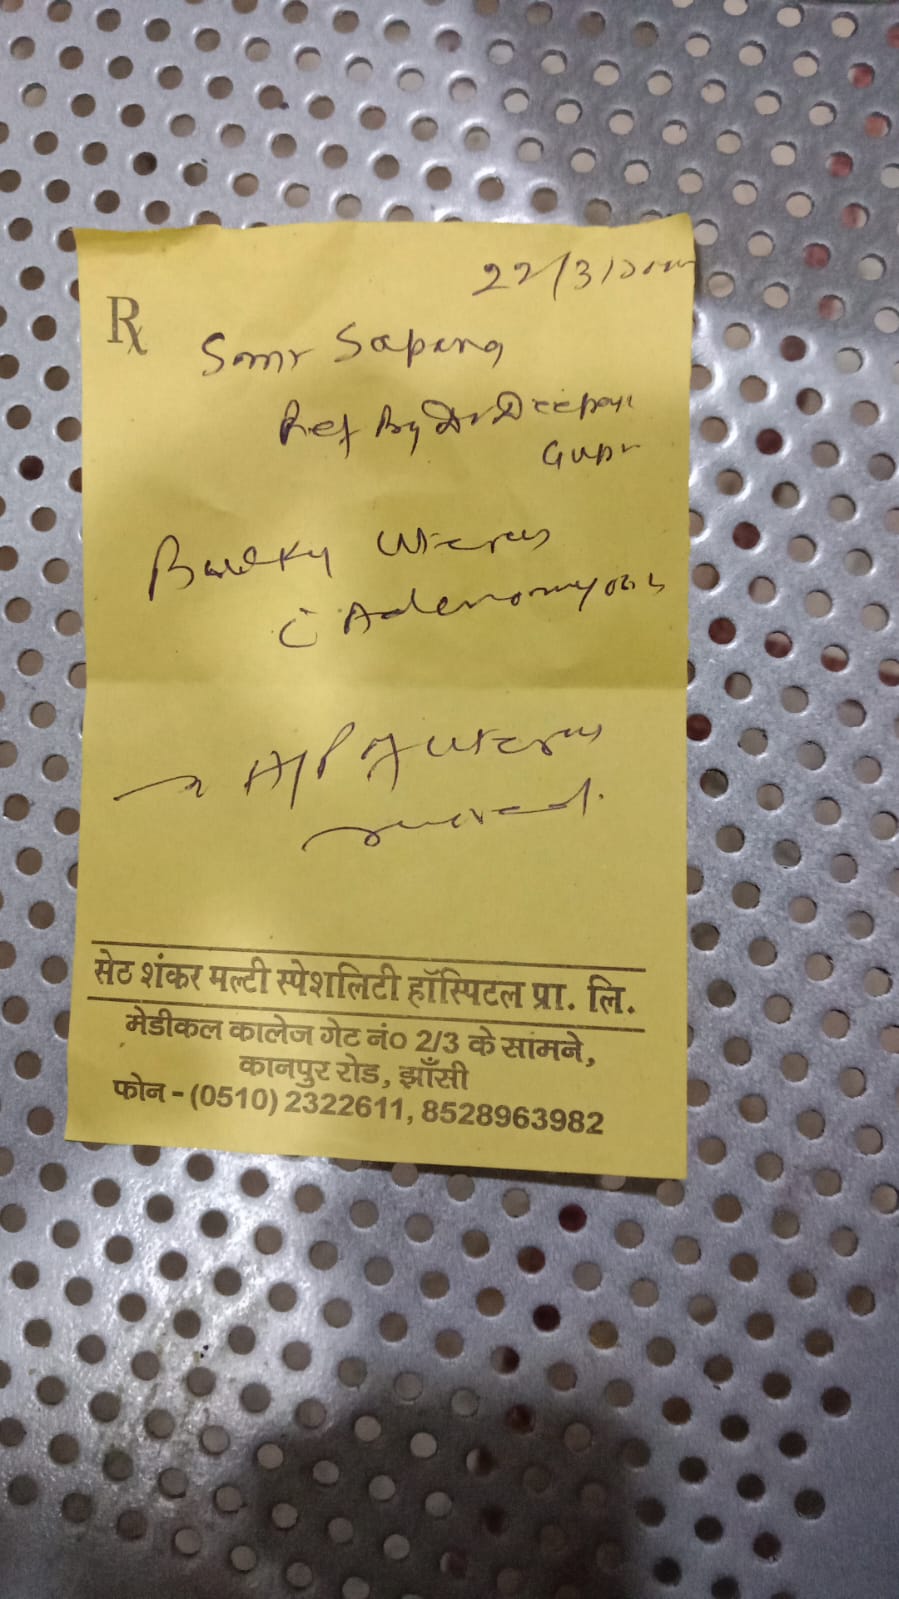 22/3/20
Rx
Smr Sapana
Ref By Dr Deepali
Gupt
Bulky Uterus
c̄ Adenomyosis
→ H/P of uterus
सेठ शंकर मल्टी स्पेशलिटी हॉस्पिटल प्रा. लि.
मेडीकल कालेज गेट नं० 2/3 के सामने,
कानपुर रोड, झाँसी
फोन - (0510) 2322611, 8528963982